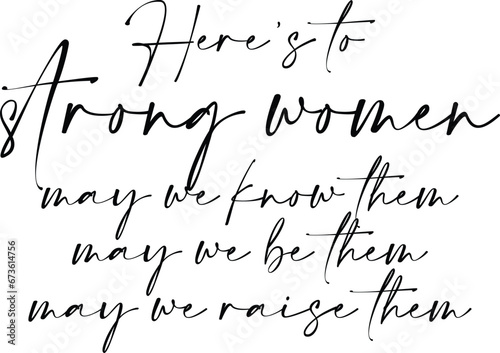 Here's to
strong women
may we know them
may we be them
may we raise them
Adobe Stock | #673614756